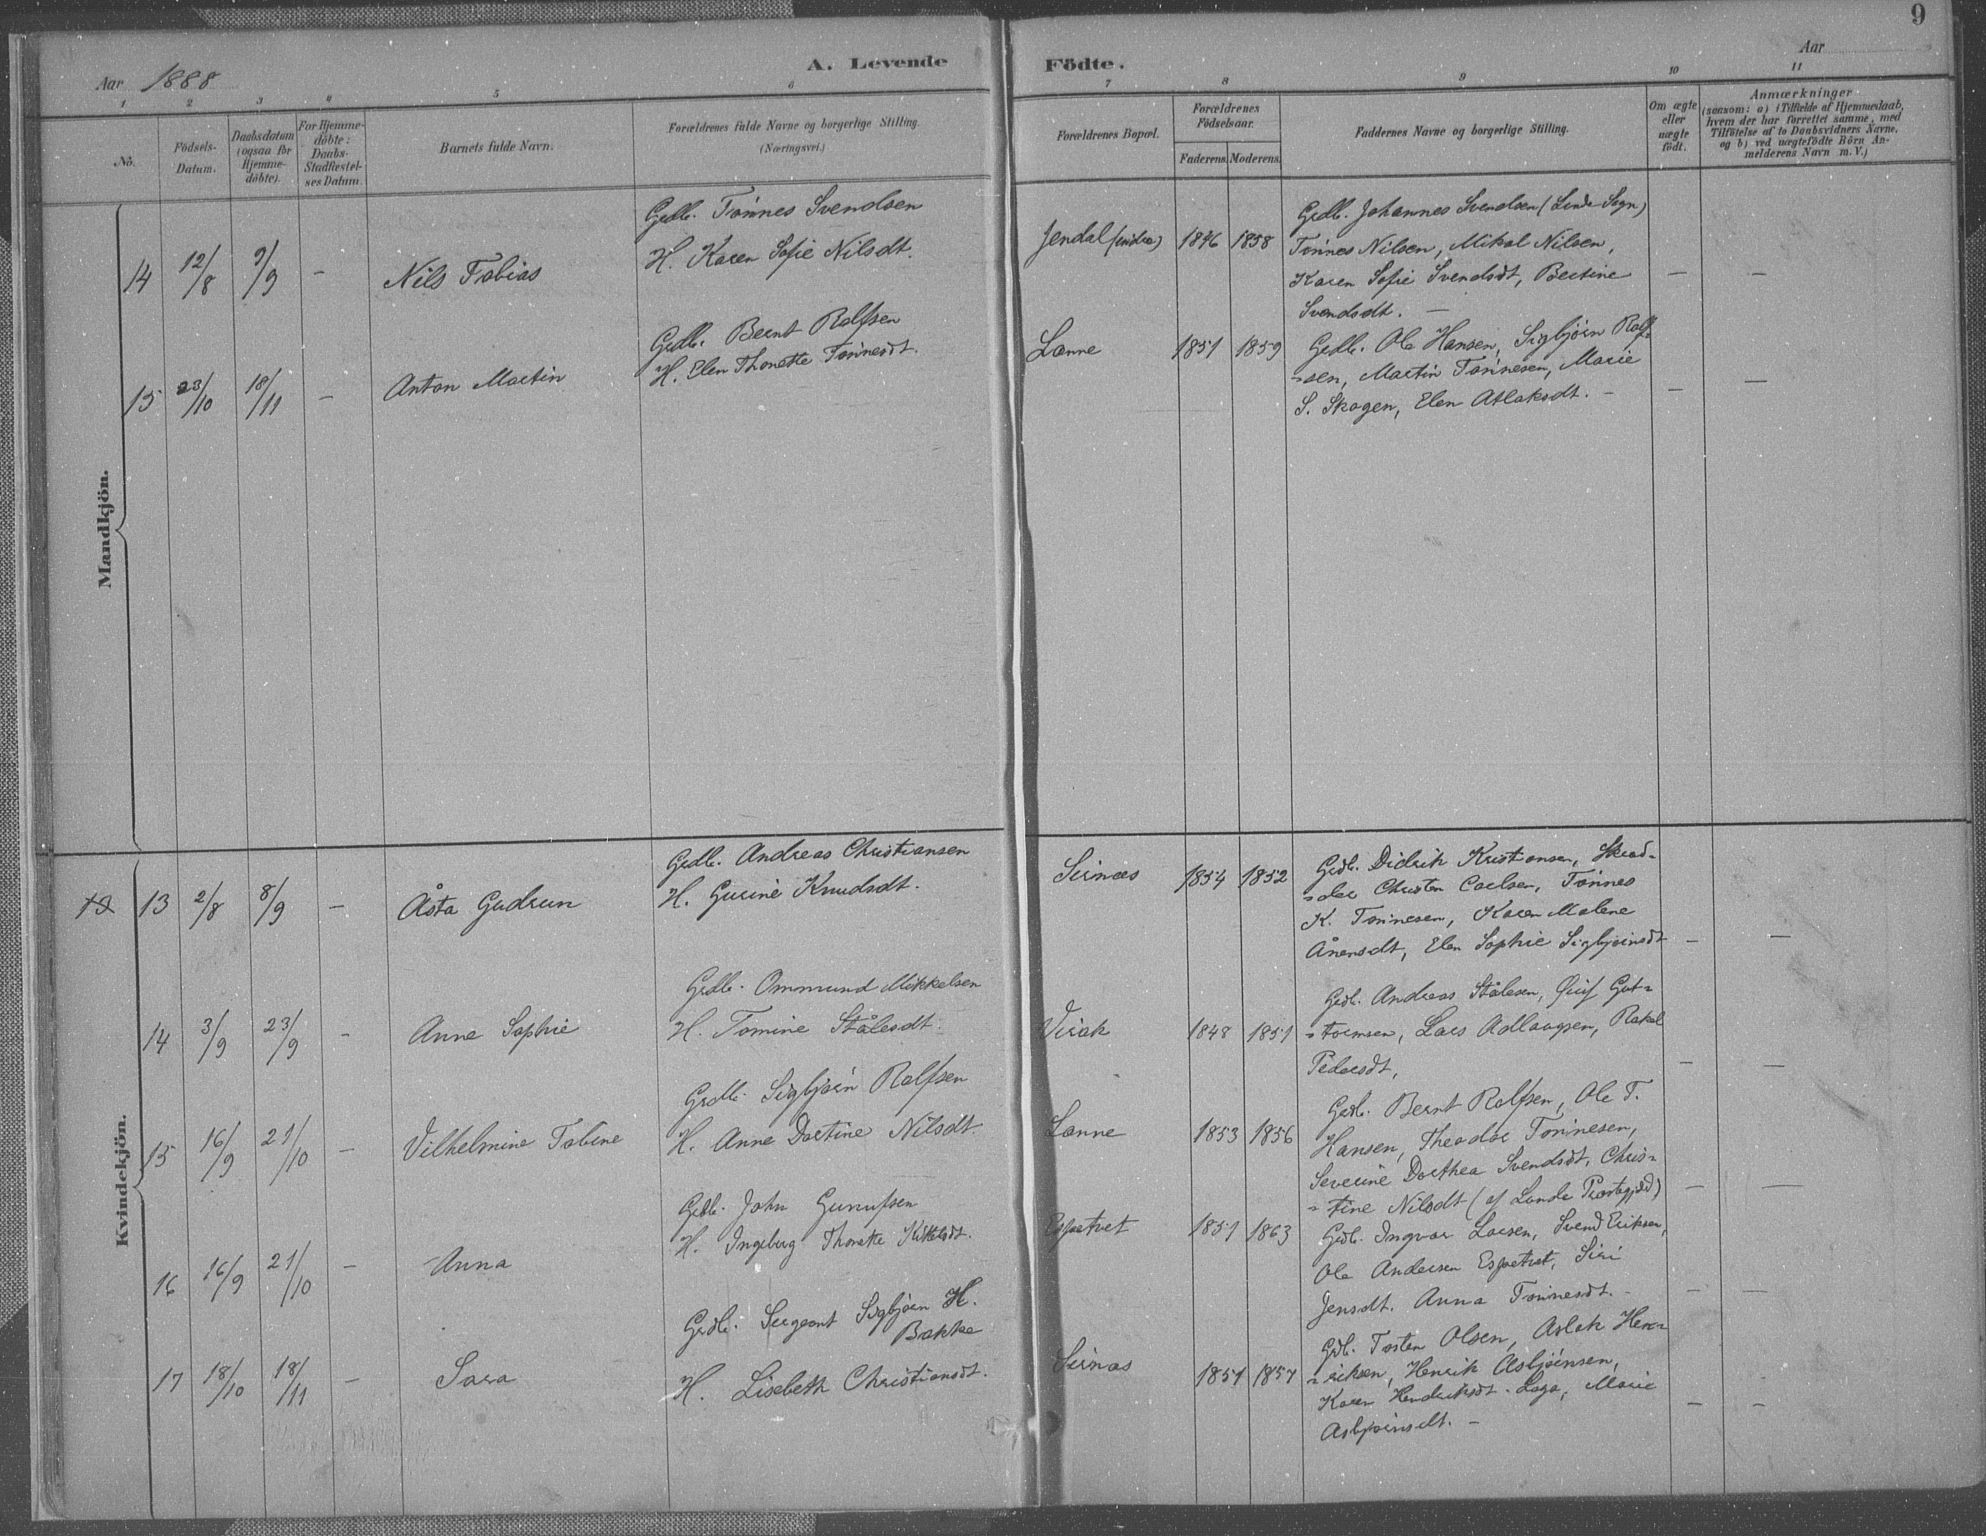 9
Aar 1888
A. Levende Födte.
Aar
1 2 3 4 5 6 7 8 9 10 11
No.
Födsels-
Datum.
Daabsdatum
(ogsaa for
Hjemme-
döbte).
For Hjemme-
döbte:
Daabs-
Stadfæstel-
ses Datum.
Barnets fulde Navn.
Forældrenes fulde Navne og borgerlige Stilling.
(Næringsvei.)
Forældrenes Bopæl.
Forældrenes
Födselsaar.
Faderens. Moderens.
Faddernes Navne og borgerlige Stilling.
Om ægte
eller
uægte
födt.
Anmærkninger
(saasom: a) i Tilfælde af Hjemmedaab,
hvem der har forrettet samme, med
Tilföielse af to Daabsvidners Navne,
og b) ved uægtefödte Börn An-
melderens Navn m. V.)
Mandkjön.
14 12/8 9/9 - Nils Tobias
Grdb. Tønnes Svendsen
H. Karen Sofie Nilsdt.
Jendal 1858
Grdb. Johannes Svendsen (Sogn)
Tønnes Nilsen, Mikal Nilsen,
Karen Sofie Svendsdt, Bertine
Svendsdt. -
15 23/10 18/11 - Anton Martin
Grdb. Bernt Rolfsen
H. Elen Thonette Tønnesdt.
Lanne 1851 1859
Grdb. Ole Hansen, Sigbjørn Rolf-
sen, Martin Tønnesen, Marie
S. Skogen, Elen Aslaksdt. -
Kvindekjön.
13 2/8 8/9 - Åsta Gudrun
Grdb. Andreas Christiansen
H. Gurine Knudsdt.
Sirnæs 1854 1852
Grdb. Didrik Kristiansen, Skræd-
der Christen Carlsen, Tønnes
K. Tønnesen, Karen Malene
Ånensdt, Elen Sophie Sigbjørnsdt
14 3/9 23/9 - Anne Sophie
Grdb. Ommund Mikkelsen
H. Tomine Stålesdt.
Virak 1848 1851
Grdb. Andreas Stålesen, Gut-
tormsen, Lars Adlaugsen, Rakel
Pedersdt,
15 16/9 21/10 - Vilhelmine Tobine
Grdb. Sigbjørn Rolfsen
H. Anne Dortine Nilsdt.
Lanne 1853 1856
Grdb. Bernt Rolfsen, Ole T.
Hansen, Theodor Tønnesen,
Severine Dorthea Svendsdt, Chris-
tine Nilsdt (af Lunde Præstegjæld)
16 16/9 21/10 - Anna
Grdb. John Gunufsen
H. Ingeborg Thonette
Espetvet 1851 1863
Grdb. Ingvar Larsen, Svend Eriksen,
Ole Andersen Espetvet, Siri
Jensdt. Anna Tønnesdt. -
17 18/10 18/11 - Sara
Grdb. Sergeant Sigbjørn H.
Bakke
H. Lisebeth Christiansdt.
Sirnæs 1851 1857
Grdb. Torsten Olsen, Aslak Hen-
riksen, Henrik Asbjørnsen,
Karen Hendriksdt. Laga, Marie
Asbjørnsdt. -